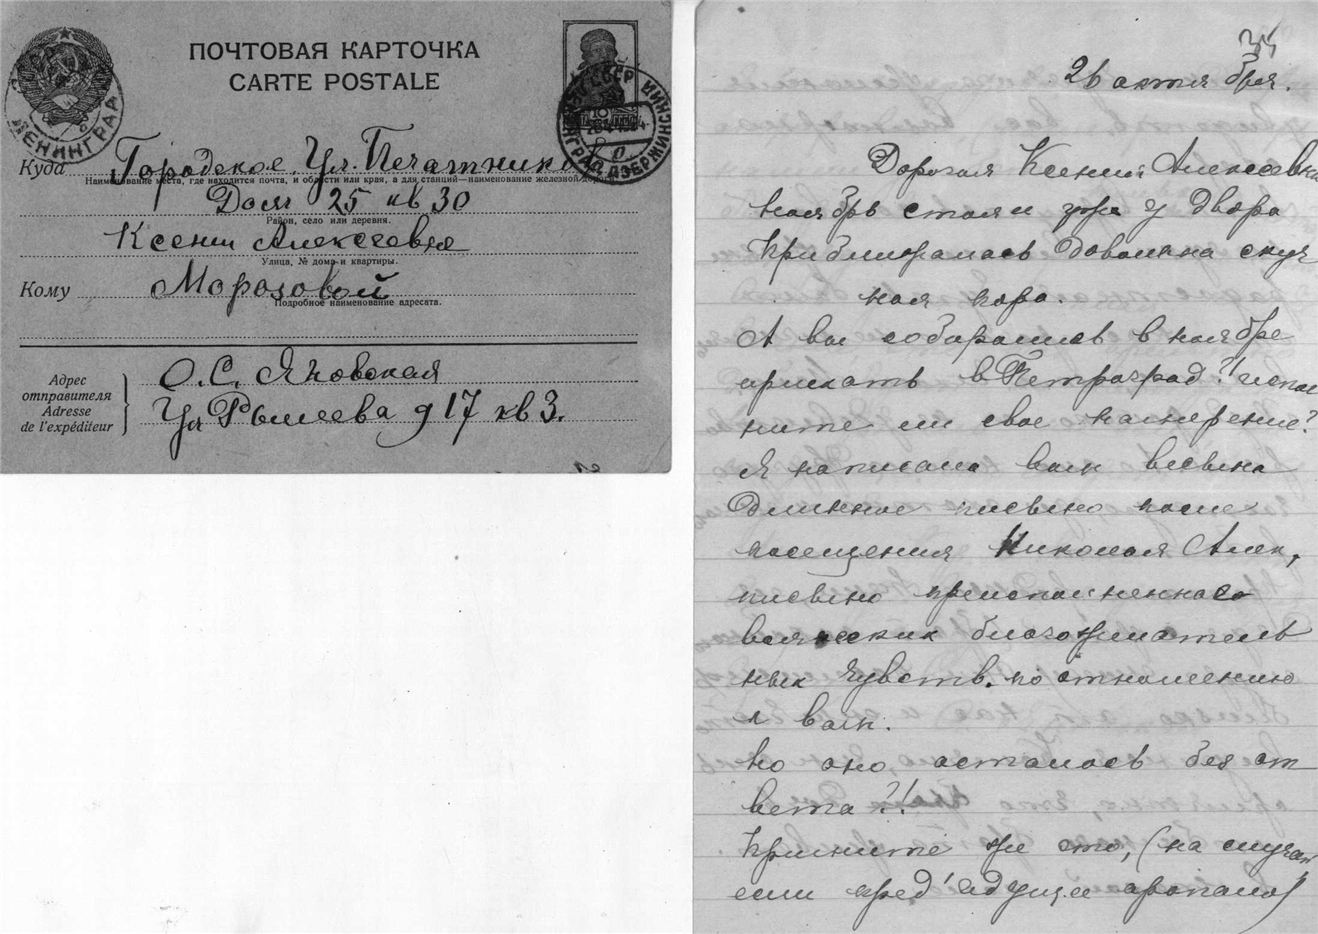 ПОЧТОВАЯ КАРТОЧКА
CARTE POSTALE
ЛЕНИНГРАД
Куда Городское, Ул. Печатнико
Наименование места, где находится почта, и области или края, а для станций—наименование железной дороги.
Дом 25 кв 30
Район, село или деревня.
Ксении Алексеевне
Улица, № дома и квартиры.
Кому Морозовой
Подробное наименование адресата.
Адрес
отправителя
Adresse
de l'expéditeur
О. С. Яновская
Ул Рылеева д 17 кв 3.
34
26 октября.
Дорогая Ксения Алексеевна
ноябрь стоял уже у двора
приближалась довольна скуч
ная пора.
А вы собирались в ноябре
приехать в Петроград?! испол
ните ли свое намерение?
Я написала вам весьма
длинное письмо после
посещения Николая Алек,
письмо преисполненнаго
всяческих благожелатель
ных чувств. по отношению
к вам.
Но оно осталось без от
вета?!
Примите же это, (на случай
если пред'идущее пропало)